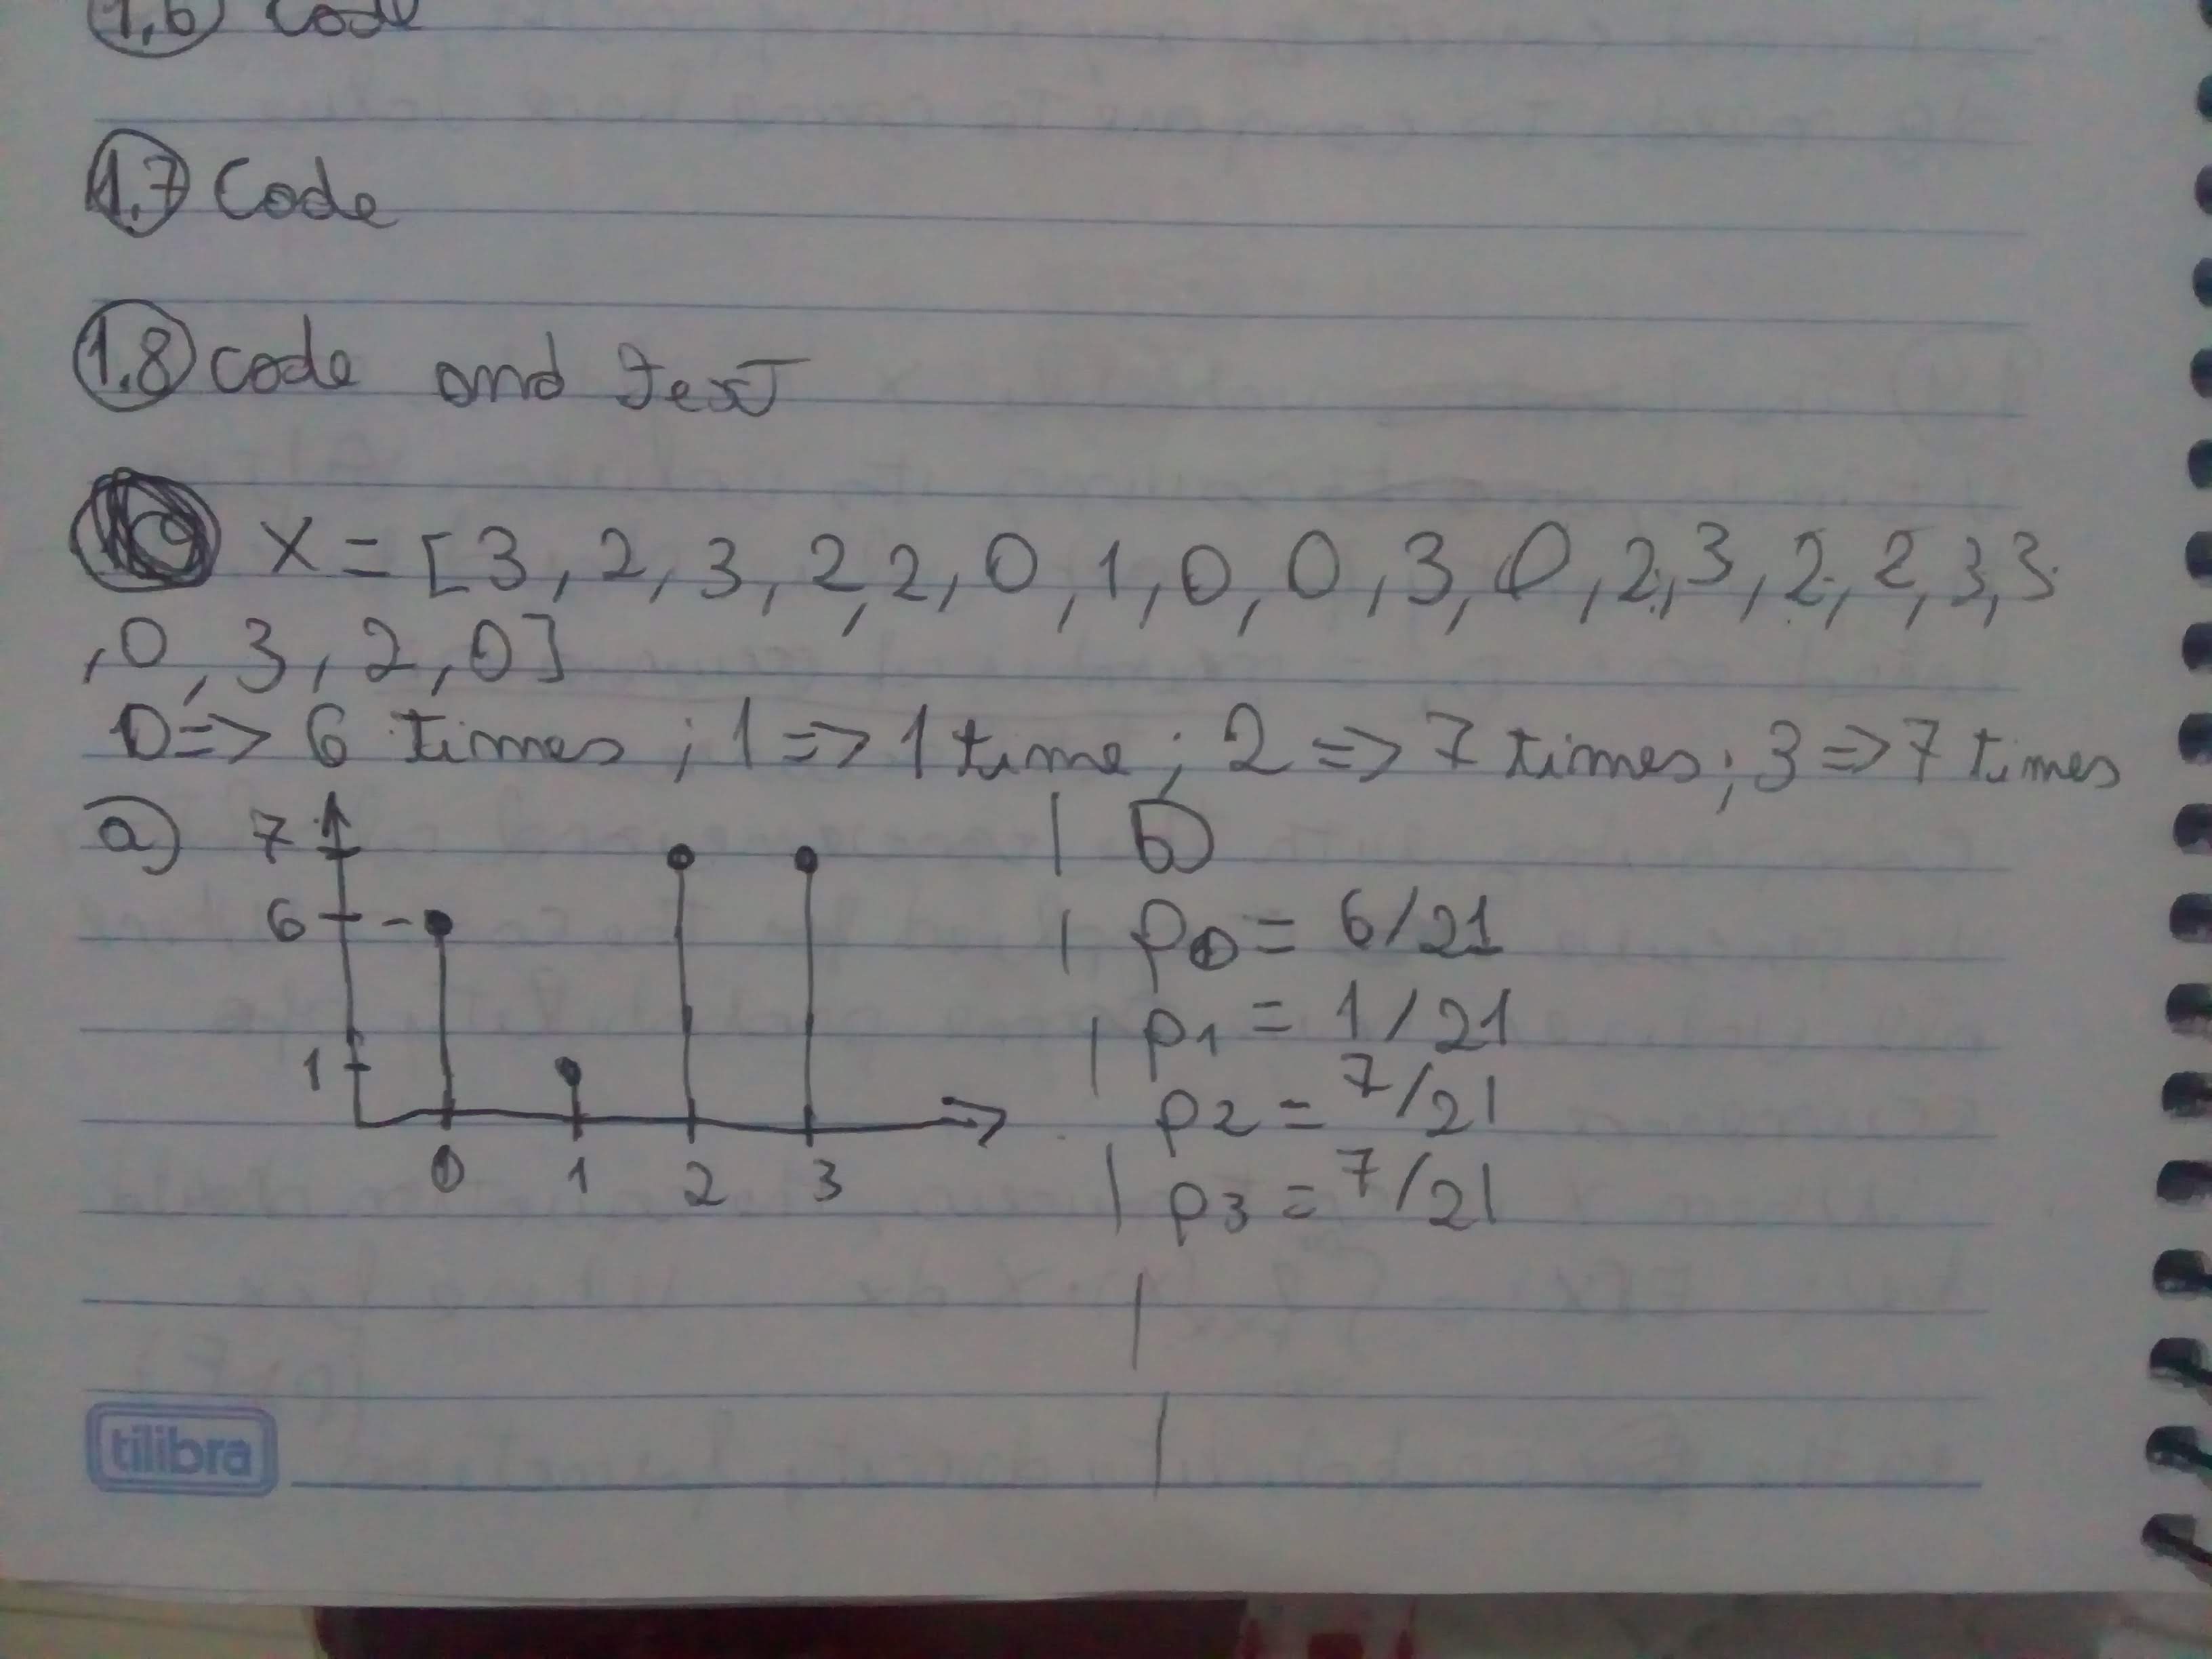 1.6 Code
1.7 Code
1.8 code and text
X = [3, 2, 3, 2, 2, 0, 1, 0, 0, 3, 0, 2, 3, 2, 2, 3, 3
, 0, 3, 2, 0]
0 => 6 times ; 1 => 1 time ; 2 => 7 times ; 3 => 7 times
a)
7
6
1
0 1 2 3
b)
p0 = 6/21
p1 = 1/21
p2 = 7/21
p3 = 7/21
tilibra